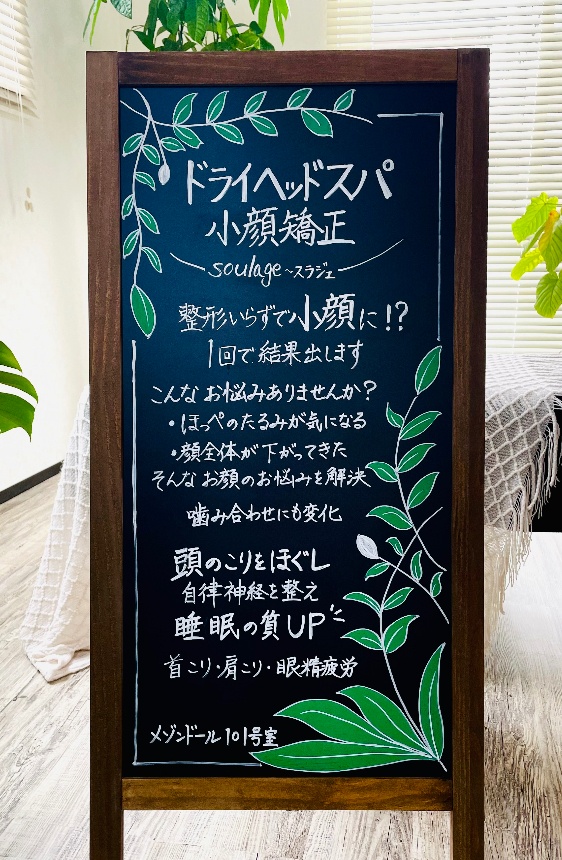 ドライヘッドスパ
小顔矯正
soulage~スラジェ
整形いらずで小顔に!?
1回で結果出します
こんなお悩みありませんか?
・ほっぺのたるみが気になる
・顔全体が下がってきた
そんなお顔のお悩みを解決
噛み合わせにも変化
頭のこりをほぐし
自律神経を整え
睡眠の質UP
首こり・肩こり・眼精疲労
メゾンドール101号室